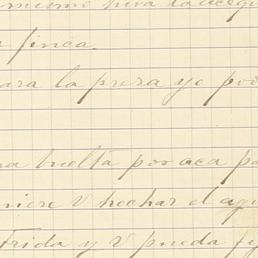 mismo para la acequ
finca.
para la presa yo po
buelta por aca pa
niere V hechar el agu
trida y V pueda